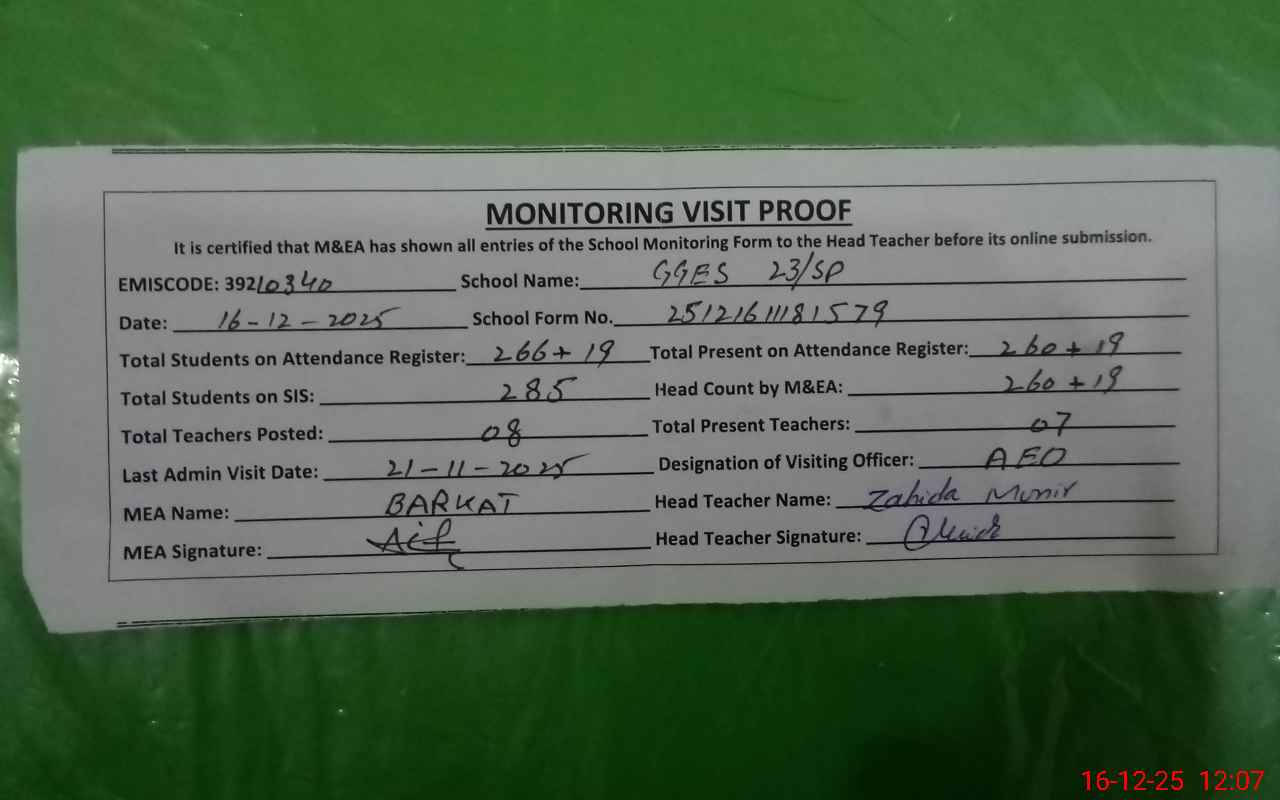 MONITORING VISIT PROOF
It is certified that M&EA has shown all entries of the School Monitoring Form to the Head Teacher before its online submission.
EMISCODE: 39210340 School Name: GGES 23/SP
Date: 16-12-2025 School Form No. 25121611181579
Total Students on Attendance Register: 266+19 Total Present on Attendance Register: 260+19
Total Students on SIS: 285 Head Count by M&EA: 260+19
Total Teachers Posted: 08 Total Present Teachers: 07
Last Admin Visit Date: 21-11-2025 Designation of Visiting Officer: AEO
MEA Name: BARKAT Head Teacher Name: Zahida Munir
MEA Signature: Head Teacher Signature:
16-12-25 12:07